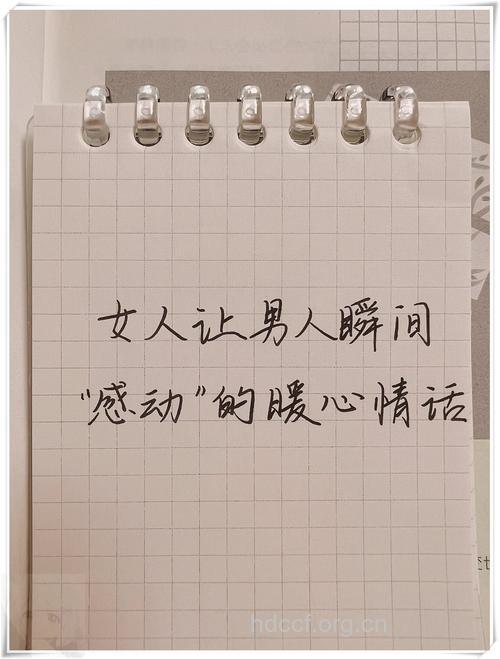 女人让男人瞬间
“感动”的暖心情话
hdccf.org.cn